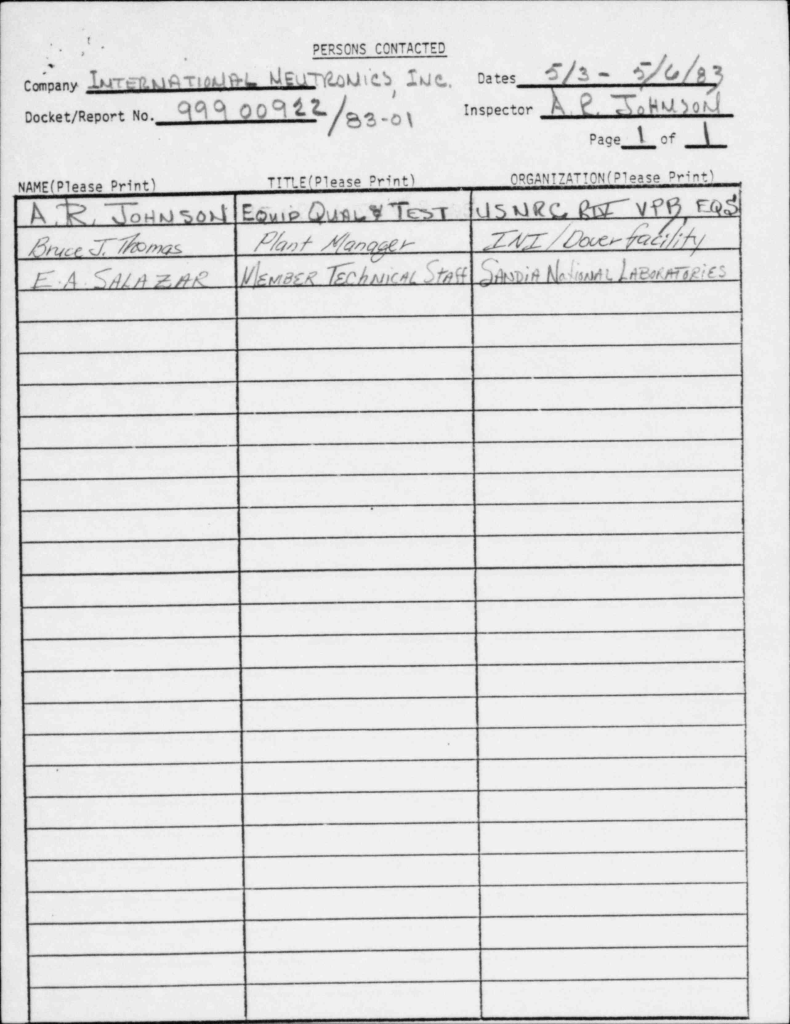 PERSONS CONTACTED
Company INTERNATIONAL NEUTRONICS, INC. Dates 5/3 - 5/6/83
Docket/Report No. 999 00922/83-01 Inspector A. R. JOHNSON
Page 1 of 1
NAME(Please Print) TITLE(Please Print) ORGANIZATION(Please Print)
A. R. JOHNSON EQUIP QUAL & TEST USNRC RIV VPB, EQS
Bruce J. Thomas Plant Manager INI / Dover facility
E. A. SALAZAR MEMBER TECHNICAL STAFF SANDIA NATIONAL LABORATORIES